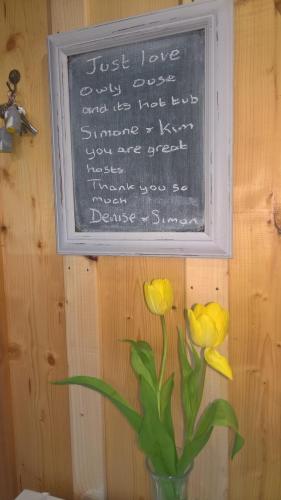 Just love
owly ouse
and its hot tub
Simone & Kim
you are great
hosts
Thank you so
much
Denise & Simon